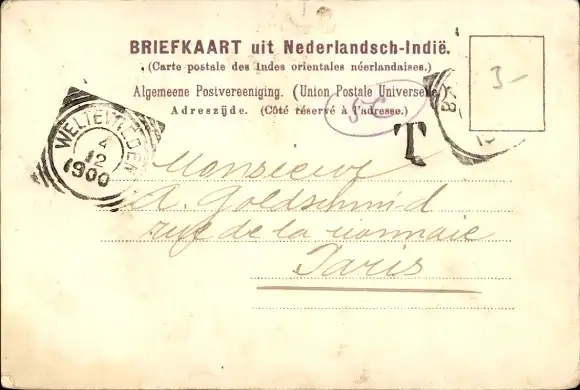 BRIEFKAART uit Nederlandsch-Indië.
(Carte postale des Indes orientales néerlandaises.)
Algemeene Postvereeniging. (Union Postale Universelle.)
Adreszijde. (Côté réservé à l'adresse.)
3-
T
WELTEVREDEN
4
12
1900
Monsieur
A. Goldschmid
rue de la monnaie
Paris